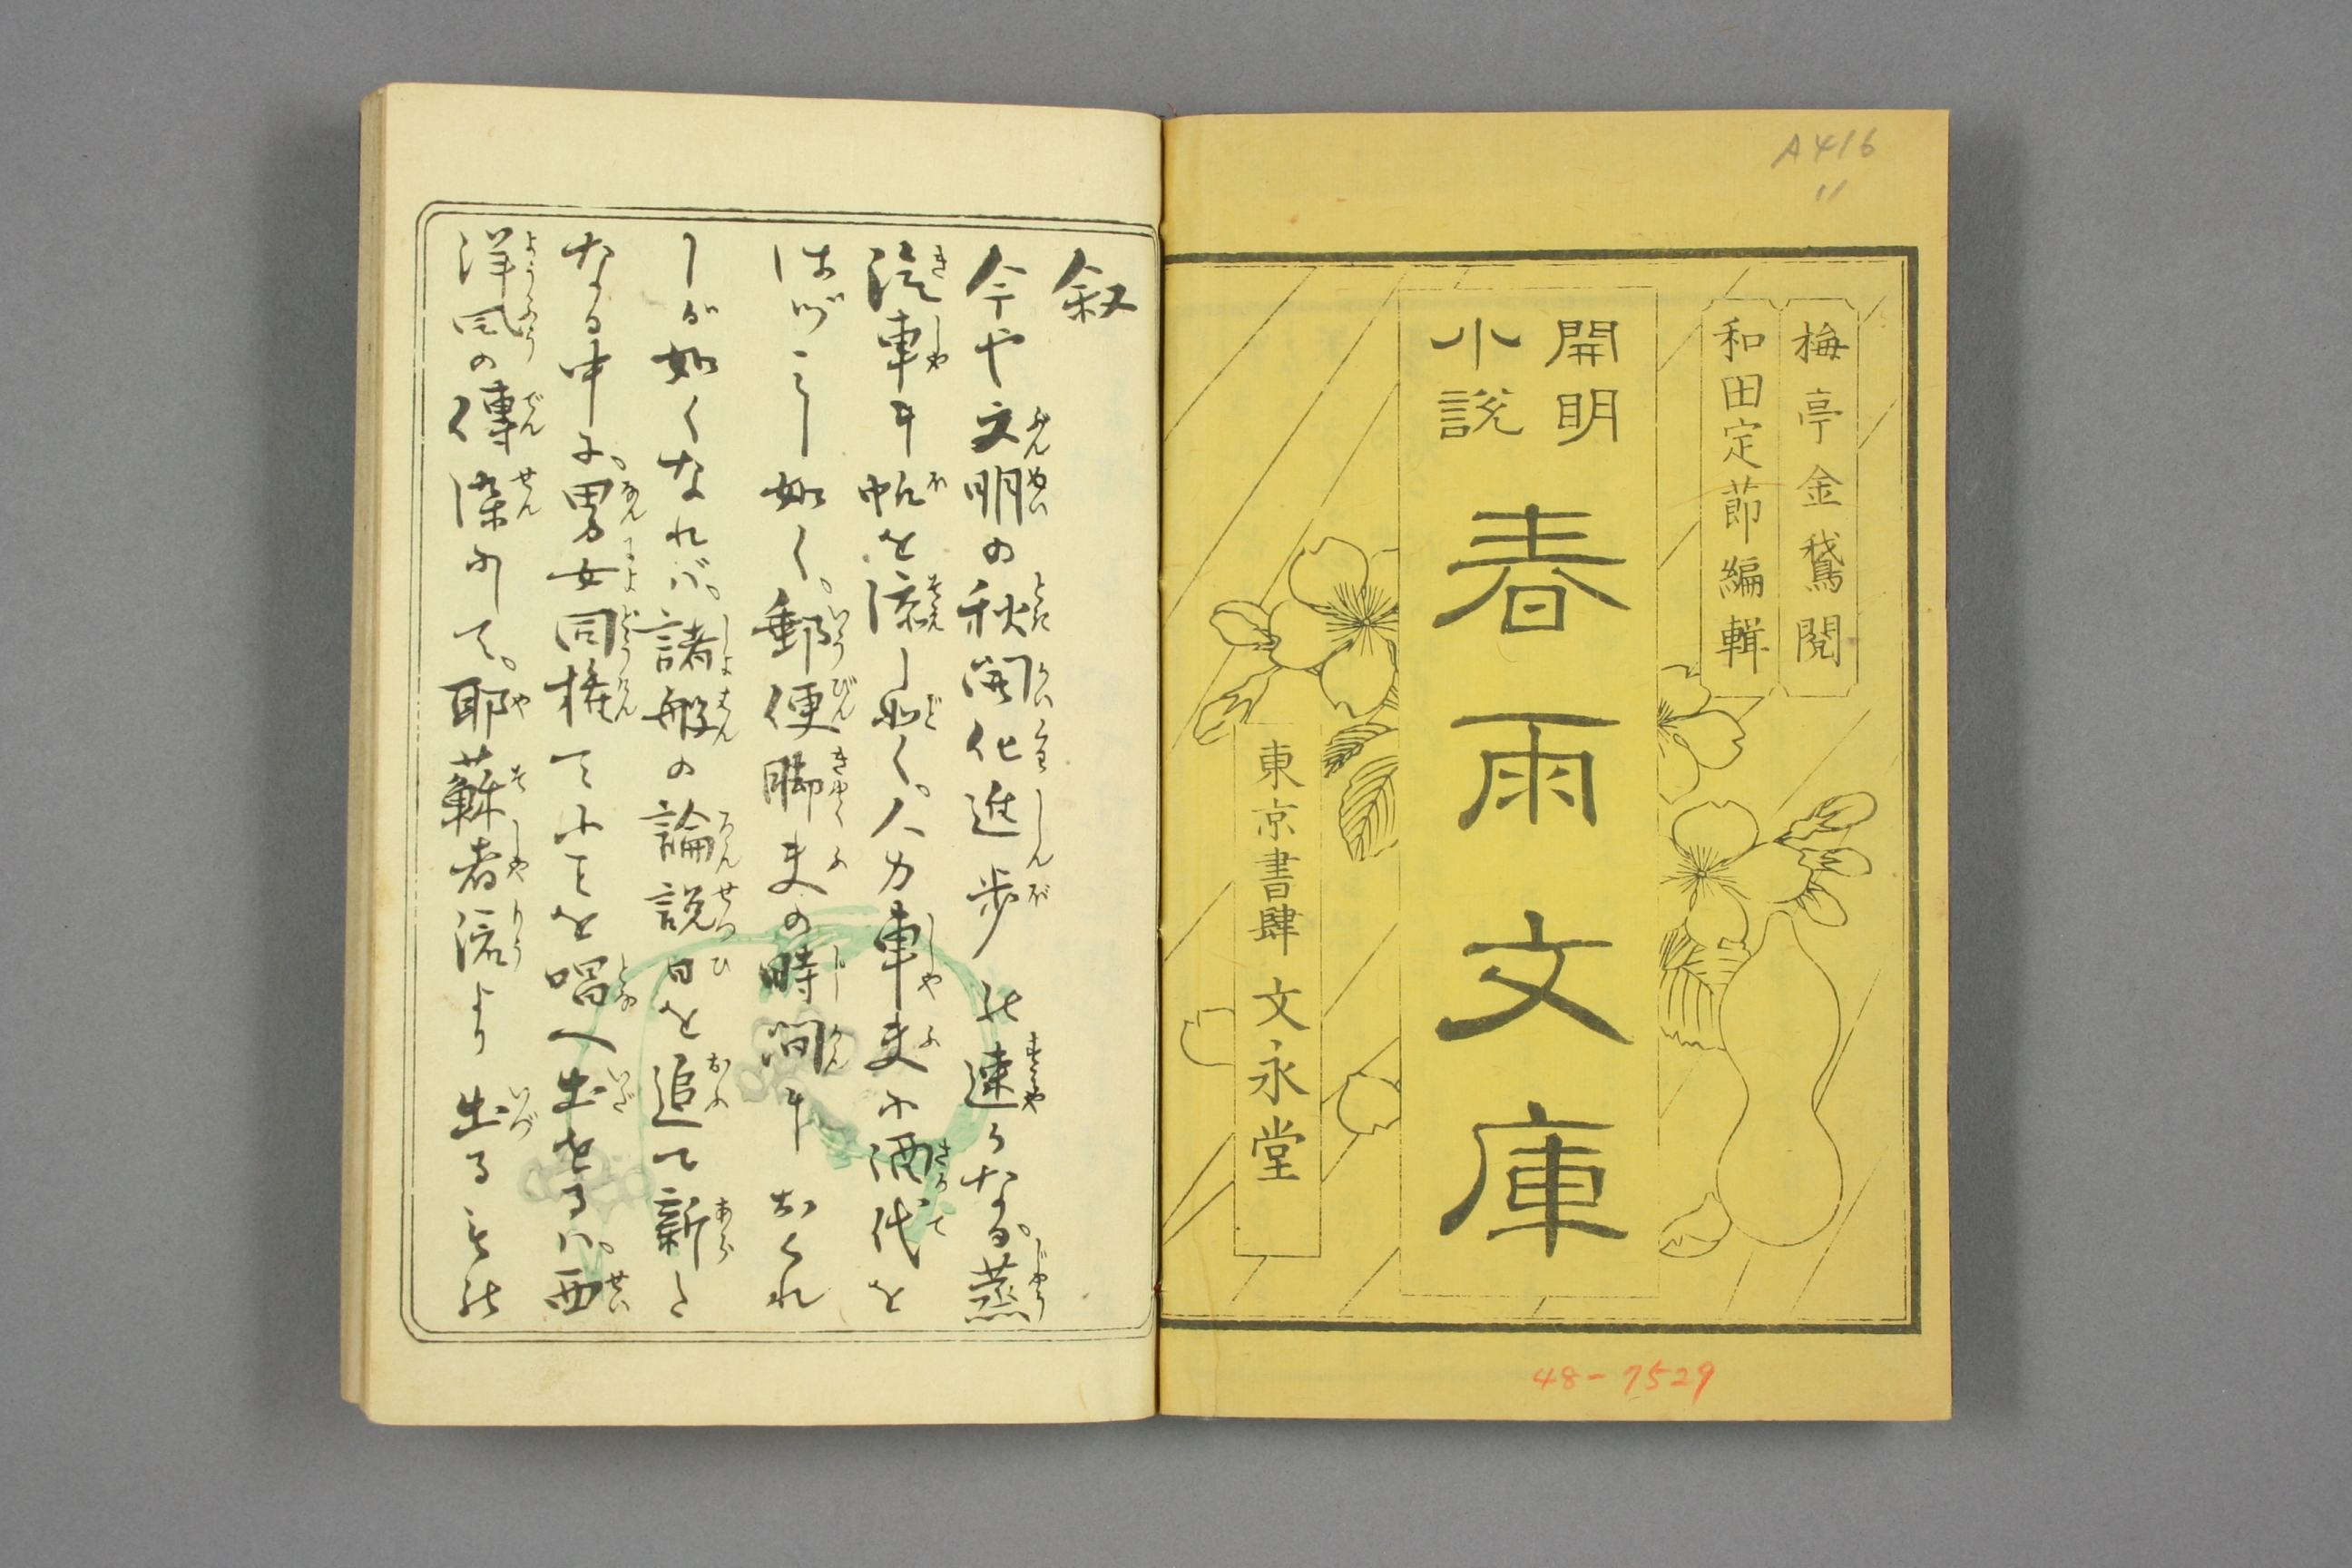 A416
〃
梅亭金鵞閲
和田定節編輯
開明
小説
春雨文庫
東京書肆 文永堂
48-7529
叙
今や文明の秋開化進歩の速かなる。蒸
汽車に帆を添し如く。人力車夫に酒代を
はづみし如く。郵便脚夫の時間におくれ
しが如くなれバ。諸般の論説日を追て新た
なる中に。男女同権てふことを唱へ出せるハ。西
洋風の傳染にして。耶蘇者流より出るもの